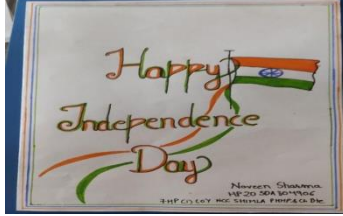 Happy
Independence
Day
Naveen Sharma
HP20 SDA
7HP (I) COY NCC SHIMLA